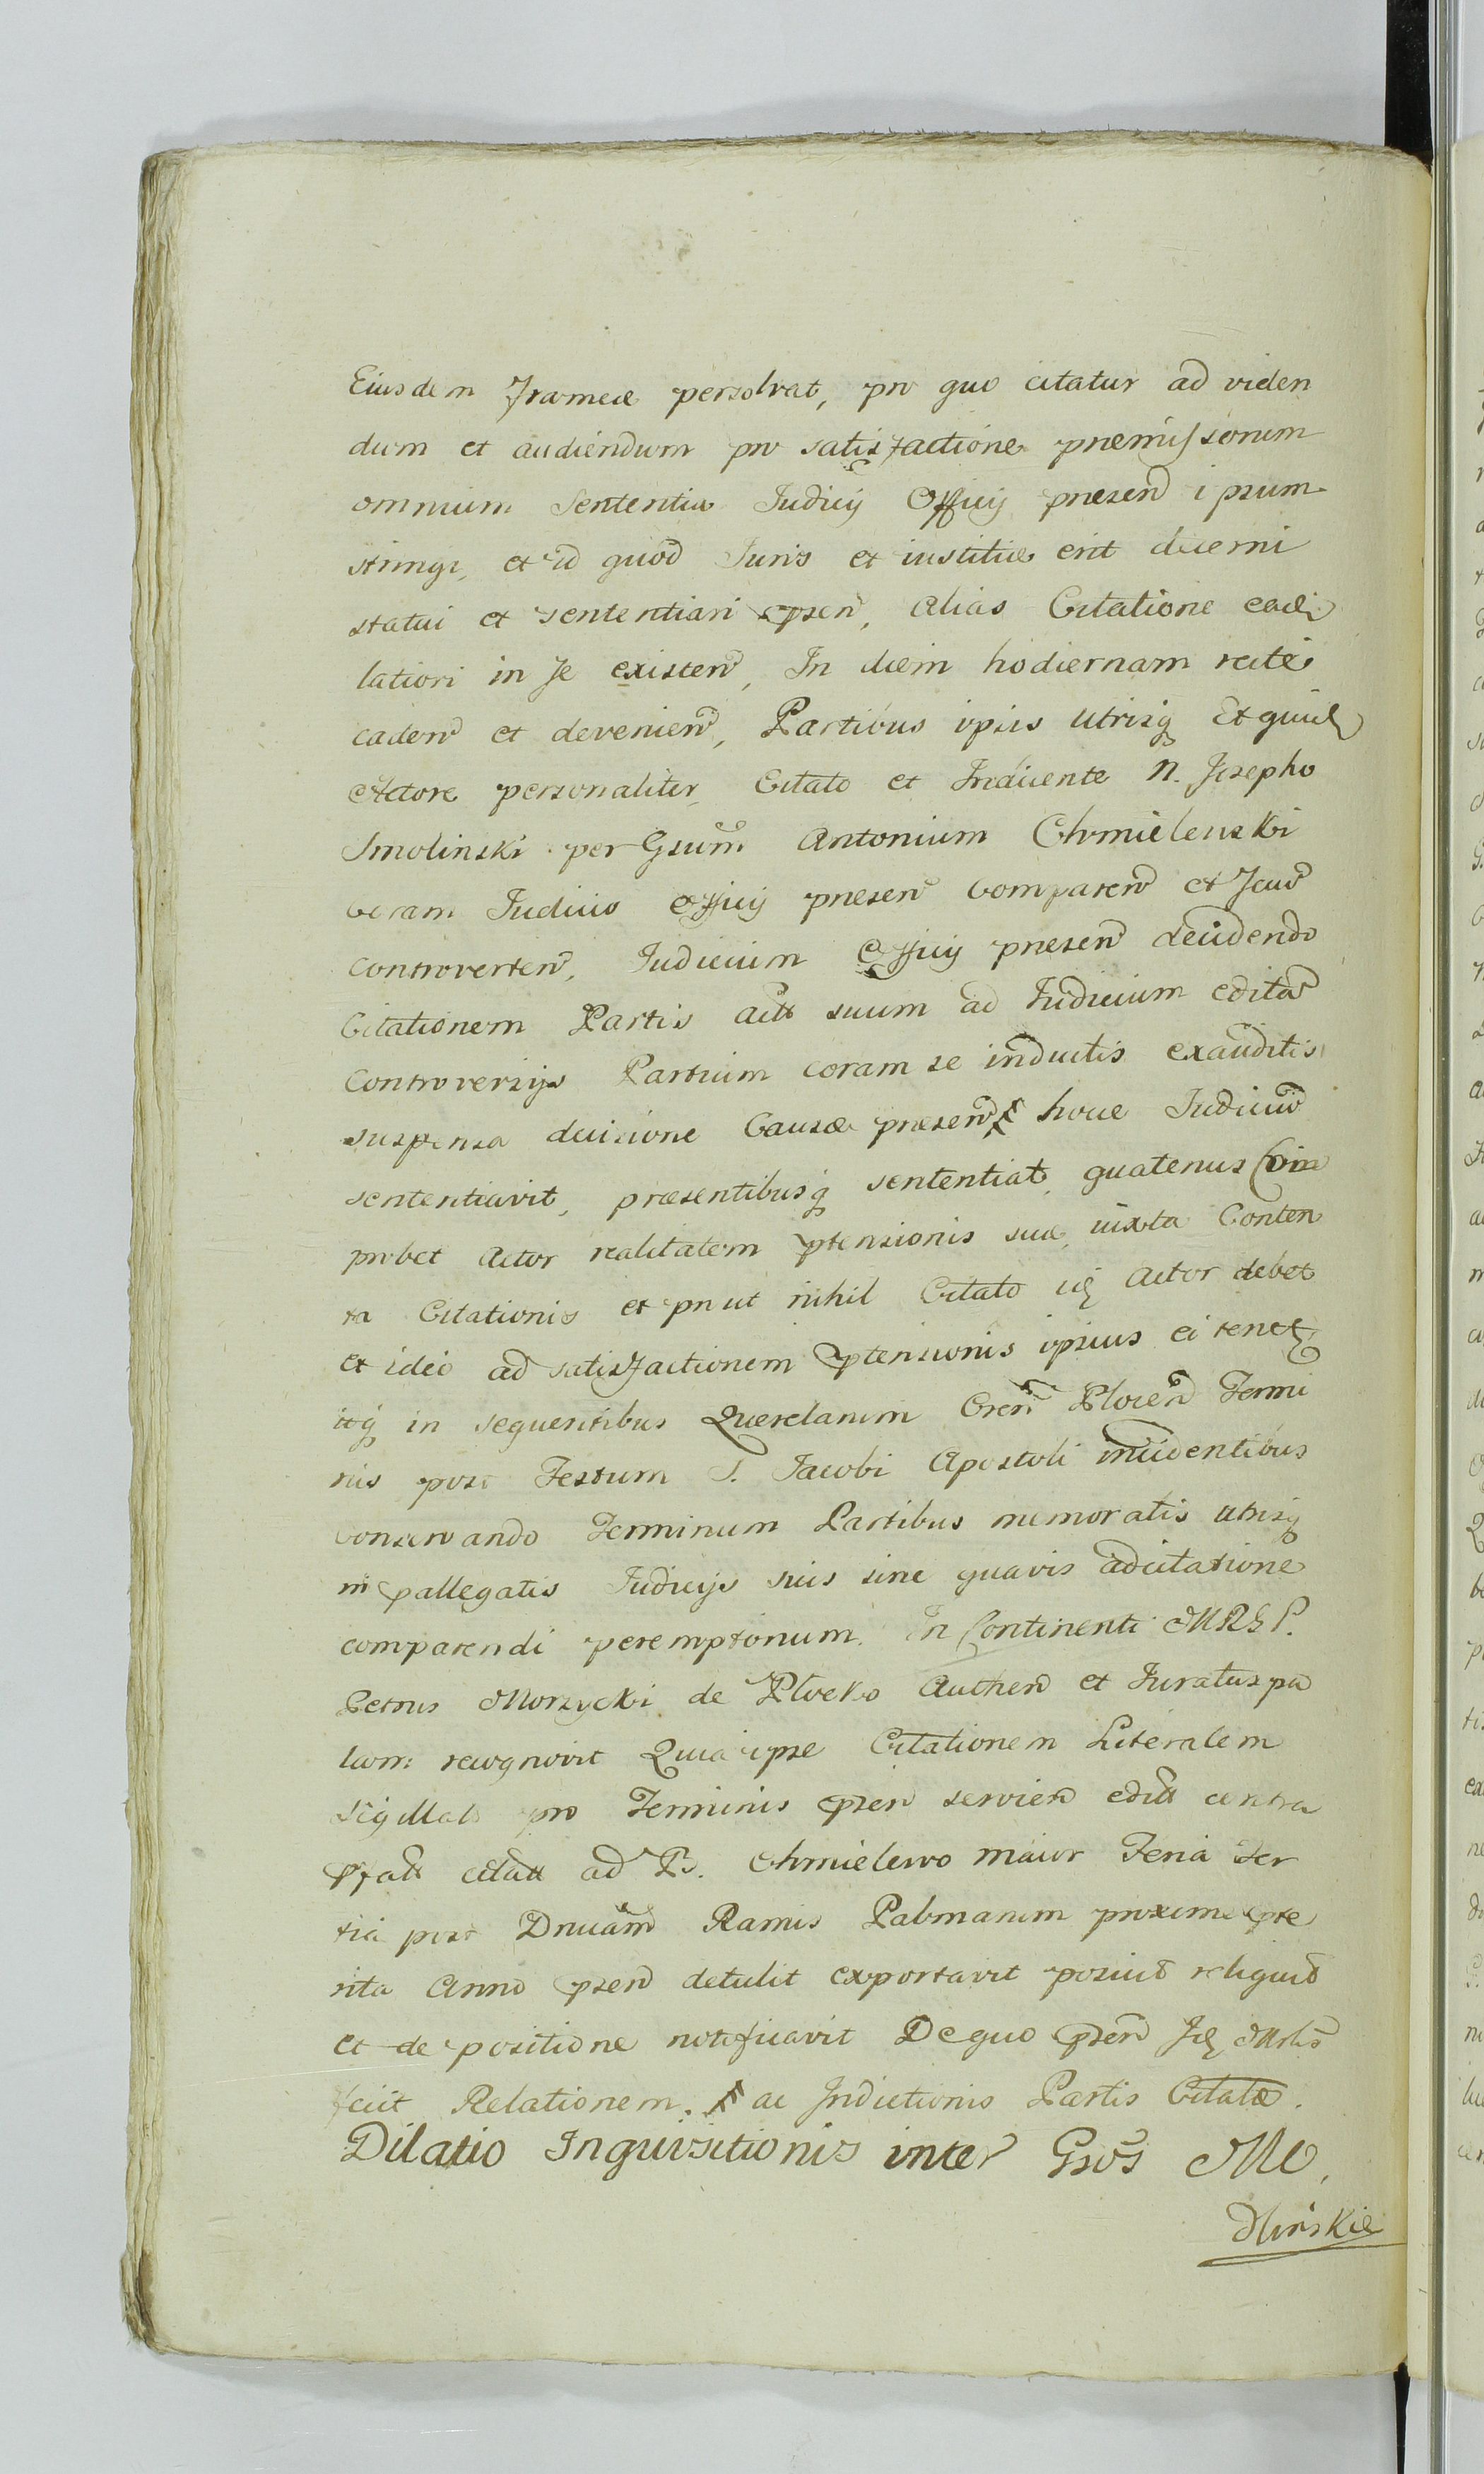 Eiusdem Frameæ persolvat, pro quo citatur ad viden
dum et audiendum pro satisfactione præmissorum
omnium Sententia Iudicij Officij præsen ipsum
stringi, et id quod Iuris et iustitiæ erit decerni
statui et sententiari psen, alias Citatione ead
latiori in se existen, In diem hodiernam recte
caden et devenien, Partibus ipsis utrisq Et quid
Actore personaliter Citato et Inducente N. Josepho
Smolinski per Gsum Antonium Chmielenski
Coram Iudicio Officij præsen Comparen et
controverten, Iudicium Officij præsen decidendo
Citationem Partis act suum ad Iudicium edita
Controversijs Partium coram se inductis exauditis
suspensa decisione Causæ præsen hocce Iudicium
sententiavit, præsentibusq sententiat quatenus
probet Actor realitatem ptensionis suæ, iuxta Conten
ta Citationis et prout nihil Citato id Actor debet
et ideo ad satisfactionem ptensionis ipsius ei tenet
itq in sequentibus Querelarum Cren Plocen Termi
nis post Festum S. Iacobi Apostoli incidentibus
Conservando Terminum Partibus memoratis utrisq
in pallegatis Iudicijs suis sine quavis adcitatione
comparendi peremptorium. In Continenti MRGP.
Petrus Morzycki de Plocko Authen et Iuratus pa
lam recognovit Quia ipse Citationem Literalem
Sigillat pro Terminis psen servien edit contra
pfatt citatt ad B. Chmielewo maior Feria Ter
tia post Dnicam Ramis Palmarum proxime pte
rita Anno psen detulit exportavit posuit reliquit
et de positione notificavit De quo psen Id Mrlis
fecit Relationem. ac Indictionis Partis Citatæ.
Dilatio Inquisitionis inter Gsos Mo,
dlinskie